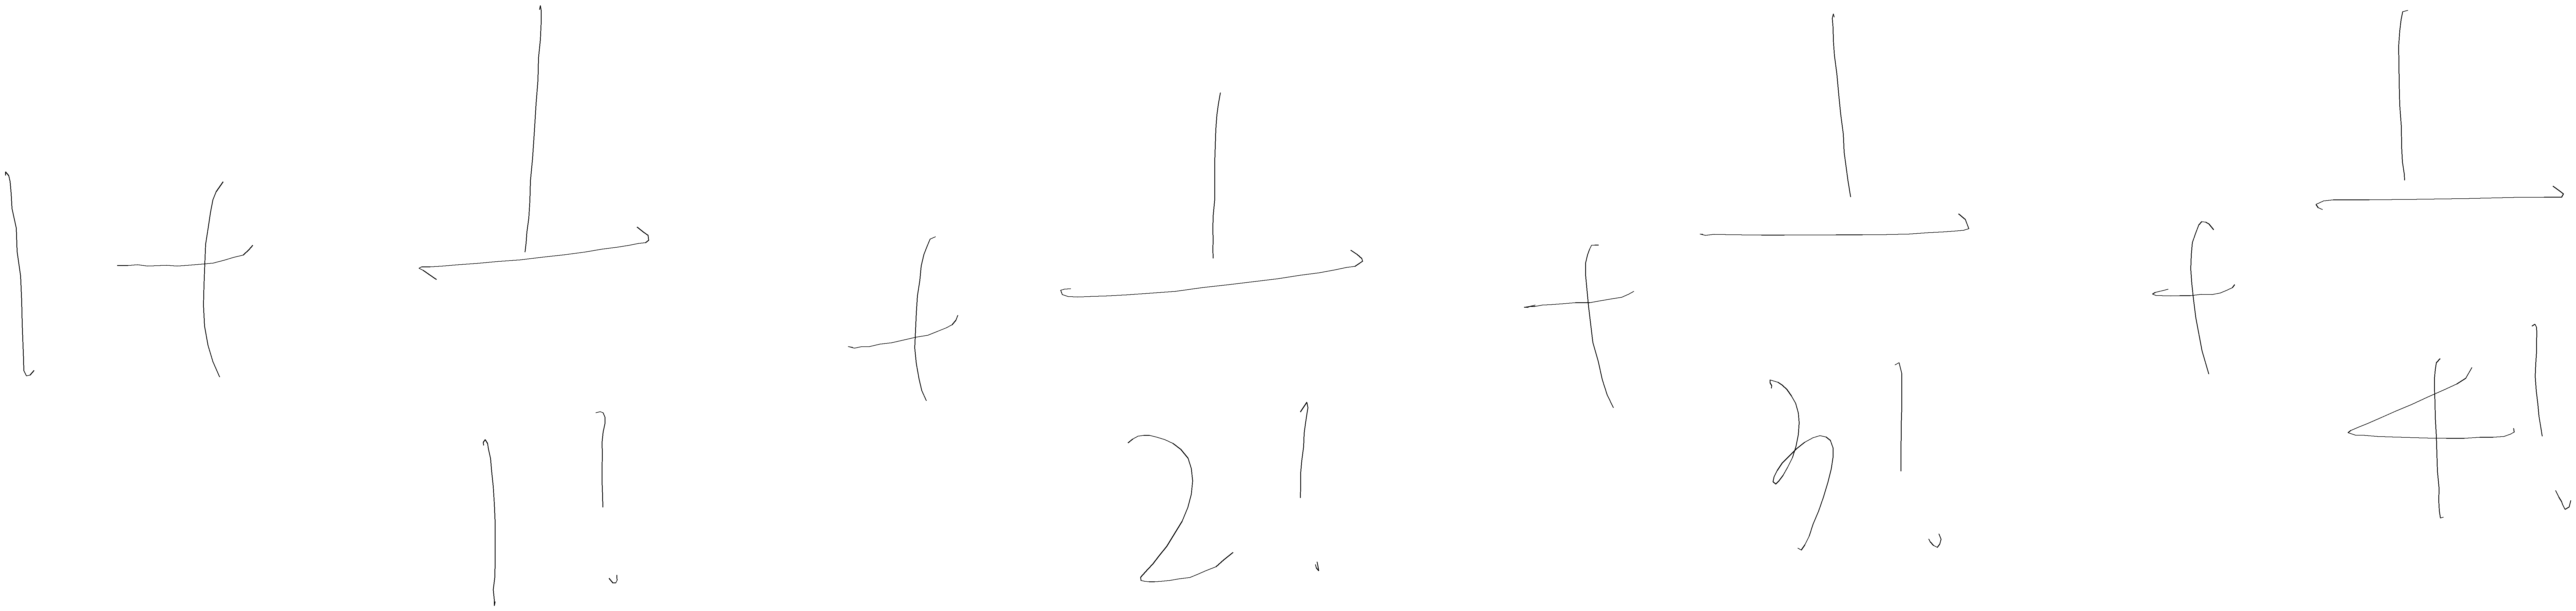 1 + \frac{1}{1!} + \frac{1}{2!} + \frac{1}{3!} + \frac{1}{4!}